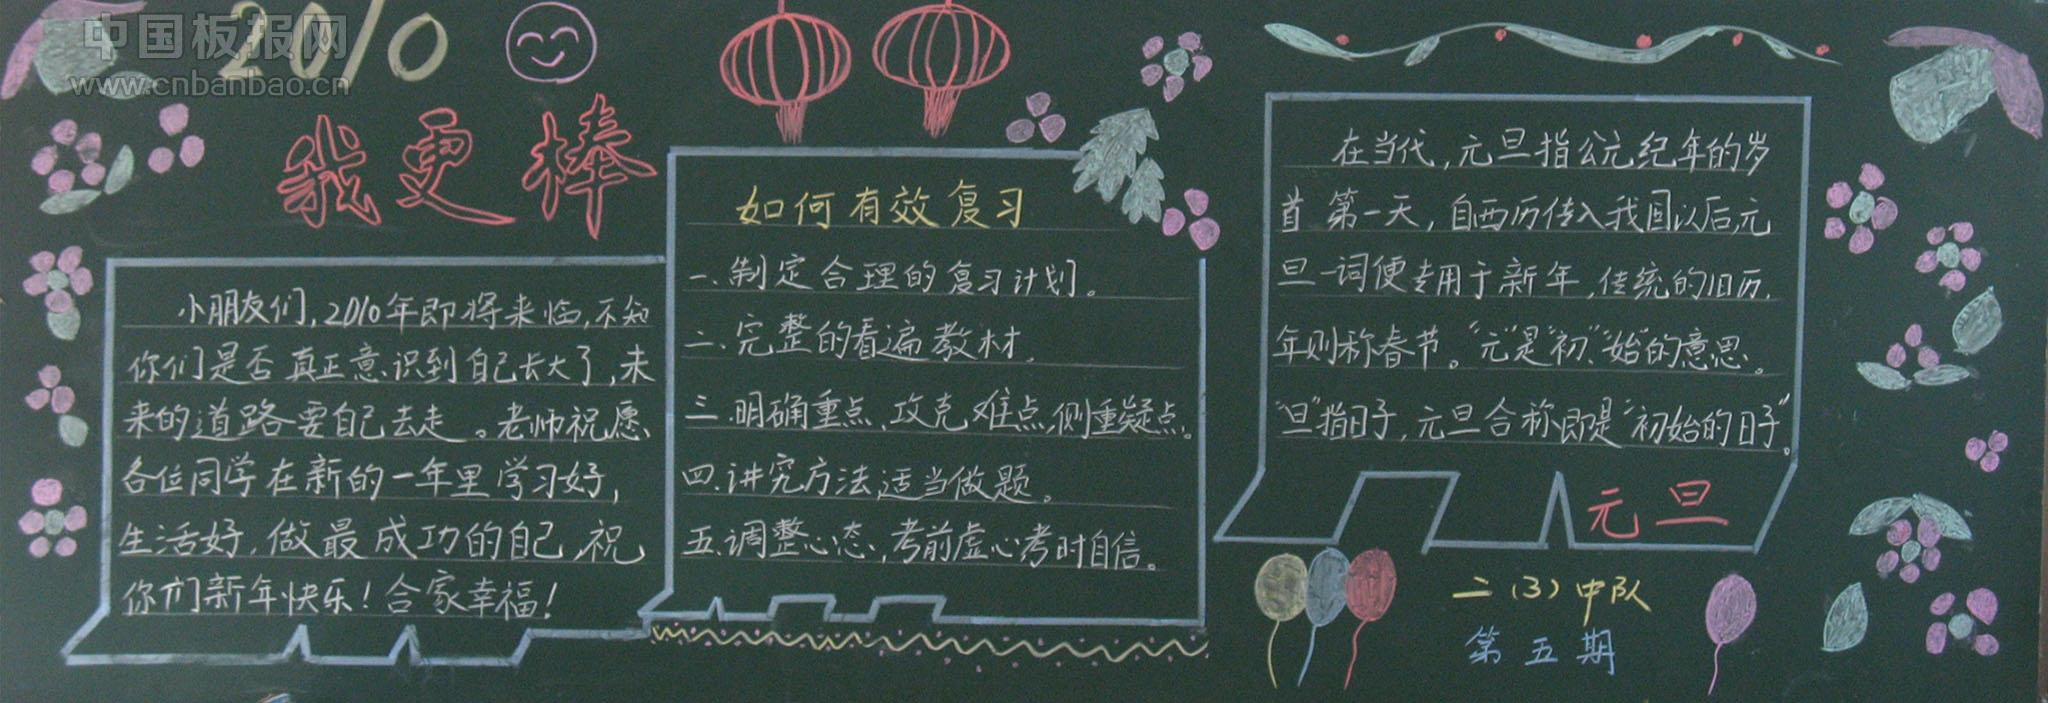 中国板报网
www.cnbanbao.cn
2010
我更棒
小朋友们,2010年即将来临,不知
你们是否真正意识到自己长大了,未
来的道路要自己去走。老师祝愿
各位同学在新的一年里学习好,
生活好,做最成功的自己,祝
你们新年快乐!合家幸福!
如何有效复习
一、制定合理的复习计划。
二、完整的看遍教材.
三.明确重点、攻克难点,侧重疑点。
四.讲究方法,适当做题。
五.调整心态,考前虚心考时自信。
在当代,元旦指公元纪年的岁
首第一天,自西历传入我国以后,元
旦一词便专用于新年,传统的旧历.
年则称春节。“元”是“初”、“始”的意思。
“旦”指日子,元旦合称即是“初始的日子”。
元旦
二(3)中队
第五期